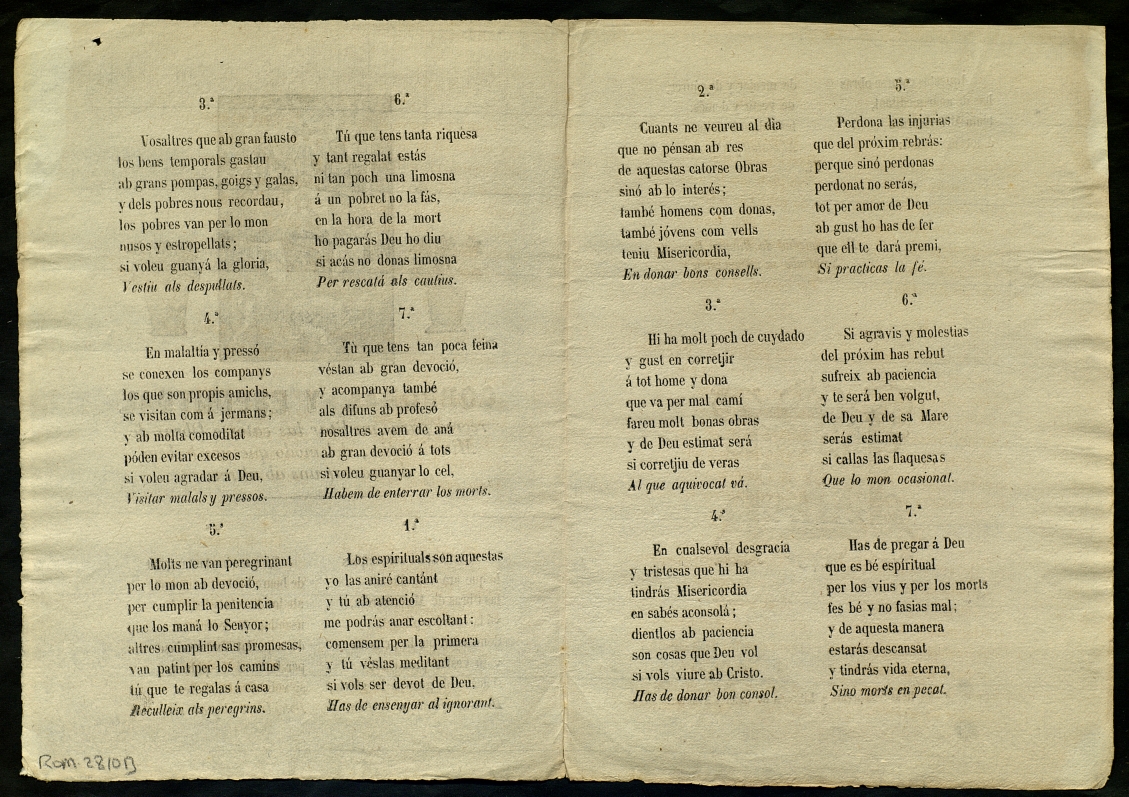 3.ª
Vosaltres que ab gran fausto
los bens temporals gastau
ab grans pompas, goigs y galas,
y dels pobres nous recordau,
los pobres van per lo mon
nusos y estropellats;
si voleu guanyá la gloria,
Vestiu als despullats.
4.ª
En malaltía y pressó
se conexen los companys
los que son propis amichs,
se visitan com á jermans;
y ab molta comoditat
póden evitar excesos
si voleu agradar á Deu,
Visitar malals y pressos.
5.ª
Molts ne van peregrinant
per lo mon ab devoció,
per cumplir la penitencia
que los maná lo Senyor;
altres cumplint sas promesas,
van patint per los camins
tú que te regalas á casa
Reculleix als peregrins.
6.ª
Tú que tens tanta riquesa
y tant regalat estás
ni tan poch una limosna
á un pobret no la fás,
en la hora de la mort
ho pagarás Deu ho diu
si acás no donas limosna
Per rescatá als cautius.
7.ª
Tù que tens tan poca feina
véstan ab gran devoció,
y acompanya també
als difuns ab profesó
nosaltres avem de aná
ab gran devoció á tots
si voleu guanyar lo cel,
Habem de enterrar los morts.
1.ª
Los espírituals son aquestas
yo las aniré cantánt
y tú ab atenció
me podrás anar escoltant:
comensem per la primera
y tú véslas meditant
si vols ser devot de Deu,
Has de ensenyar al ignorant.
2.ª
Cuants ne veureu al dia
que no pénsan ab res
de aquestas catorse Obras
sinó ab lo interés;
també homens com donas,
també jóvens com vells
teniu Misericordia,
En donar bons consells.
3.ª
Hi ha molt poch de cuydado
y gust en corretjir
á tot home y dona
que va per mal camí
fareu molt bonas obras
y de Deu estimat será
si corretjiu de veras
Al que aquivocat vá.
4.ª
En cualsevol desgracia
y tristesas que hi ha
tindrás Misericordia
en sabés aconsolá;
dientlos ab paciencia
son cosas que Deu vol
si vols viure ab Cristo.
Has de donar bon consol.
5.ª
Perdona las injurias
que del próxim rebrás:
perque sinó perdonas
perdonat no serás,
tot per amor de Deu
ab gust ho has de fer
que ell te dará premi,
Si practicas la fé.
6.ª
Si agravis y molestias
del próxim has rebut
sufreix ab paciencia
y te será ben volgut,
de Deu y de sa Mare
serás estimat
si callas las flaquesas
Que lo mon ocasionat.
7.ª
Has de pregar á Deu
que es bé espíritual
per los vius y per los morts
fes bé y no fasias mal;
y de aquesta manera
estarás descansat
y tindrás vida eterna,
Sino morts en pecat.
Rom. 2810 B